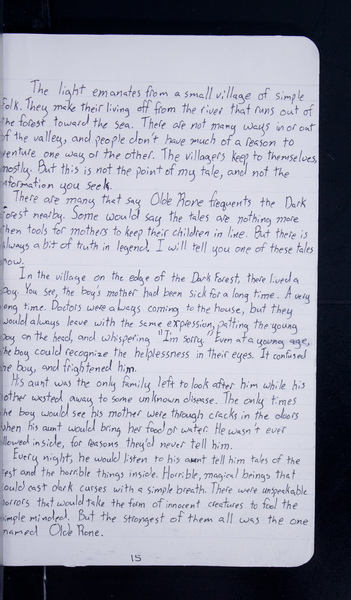 The light emanates from a small village of simple
folk. They make their living off from the river that runs out of
the forest toward the sea. There are not many ways in or out
of the valley, and people don't have much of a reason to
venture one way or the other. The villagers keep to themselves,
mostly. But this is not the point of my tale, and not the
information you seek.
There are many that say Olde Rone frequents the Dark
Forest nearby. Some would say the tales are nothing more
then tools for mothers to keep their children in line. But there is
always a bit of truth in legend. I will tell you one of these tales
now.
In the village on the edge of the Dark Forest, there lived a
boy. You see, the boy's mother had been sick for a long time. A very
long time. Doctors were always coming to the house, but they
would always leave with the same expression, patting the young
boy on the head, and whispering "I'm sorry." Even at a young age,
the boy could recognize the helplessness in their eyes. It confused
the boy, and frightened him.
His aunt was the only family left to look after him while his
mother wasted away to some unknown disease. The only times
the boy would see his mother were through cracks in the doors
when his aunt would bring her food or water. He wasn't ever
allowed inside, for reasons they'd never tell him.
Every night, he would listen to his aunt tell him tales of the
forest and the horrible things inside. Horrible, magical beings that
could cast dark curses with a simple breath. There were unspeakable
horrors that would take the form of innocent creatures to fool the
simple minded. But the strongest of them all was the one
named Olde Rone.
15